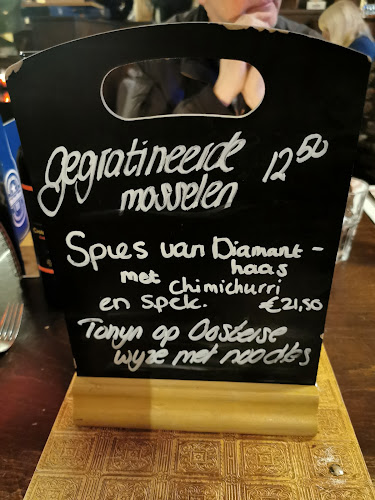 gegratineerde 12 50
mosselen
Spies van Diamant-
haas
met chimichurri
en spek. €21,50
Tonijn op Oosterse
wijze met noodles